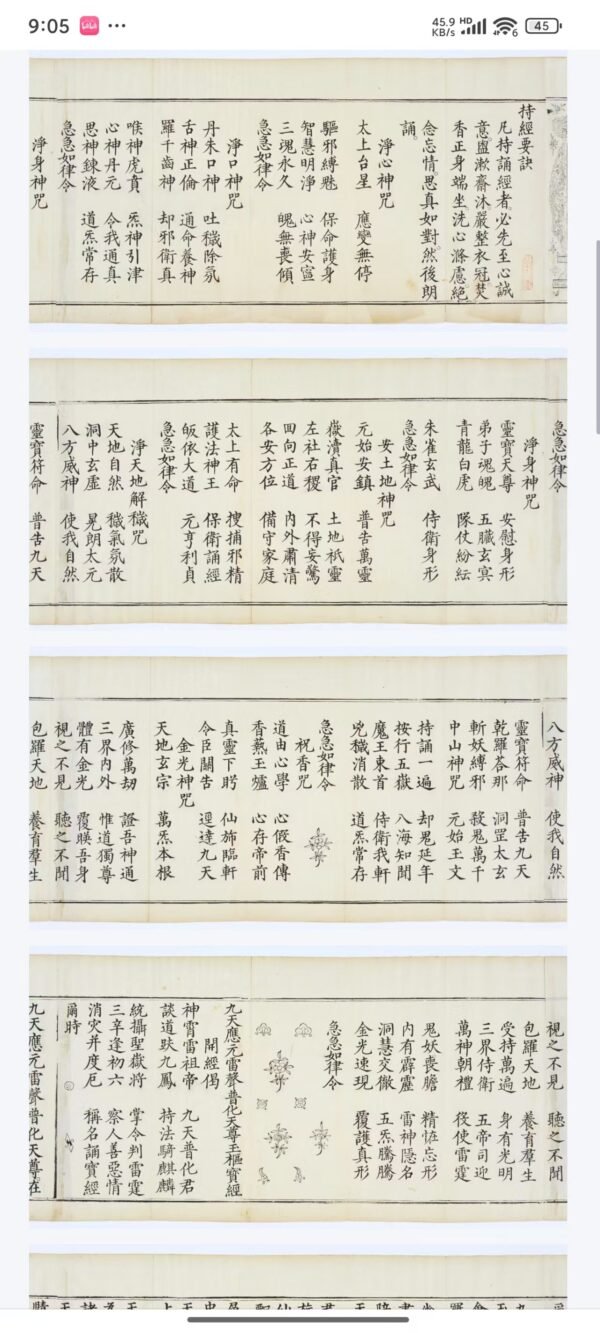 9:05
45.9 KB/s HD 6 45
持經要訣
凡持誦經者必先至心誠
意盥漱齋沐嚴整衣冠焚
香正身端坐洗心滌慮絕
念忘情思真如對然後朗
誦
淨心神咒
太上台星 應變無停
驅邪縛魅 保命護身
智慧明淨 心神安寧
三魂永久 魄無喪傾
急急如律令
淨口神咒
丹朱口神 吐穢除氛
舌神正倫 通命養神
羅千齒神 却邪衛真
喉神虎賁 炁神引津
心神丹元 令我通真
思神鍊液 道炁常存
急急如律令
淨身神咒
急急如律令
淨身神咒
靈寶天尊 安慰身形
弟子魂魄 五臟玄冥
青龍白虎 隊仗紛紜
朱雀玄武 侍衛身形
急急如律令
安土地神咒
元始安鎮 普告萬靈
嶽瀆真官 土地祇靈
左社右稷 不得妄驚
回向正道 內外肅清
各安方位 備守家庭
太上有命 搜捕邪精
護法神王 保衛誦經
皈依大道 元亨利貞
急急如律令
淨天地解穢咒
天地自然 穢氣氛散
洞中玄虛 晃朗太元
八方威神 使我自然
靈寶符命 普告九天
八方威神 使我自然
靈寶符命 普告九天
乾羅荅那 洞罡太玄
斬妖縛邪 殺鬼萬千
中山神咒 元始玉文
持誦一遍 却鬼延年
按行五嶽 八海知聞
魔王束首 侍衛我軒
兇穢消散 道炁常存
急急如律令
祝香咒
道由心學 心假香傳
香爇玉爐 心存帝前
真靈下盼 仙旆臨軒
令臣關告 逕達九天
金光神咒
天地玄宗 萬炁本根
廣修萬劫 證吾神通
三界內外 惟道獨尊
體有金光 覆映吾身
視之不見 聽之不聞
包羅天地 養育羣生
視之不見 聽之不聞
包羅天地 養育羣生
受持萬遍 身有光明
三界侍衛 五帝司迎
萬神朝禮 役使雷霆
鬼妖喪膽 精恠忘形
內有霹靂 雷神隱名
洞慧交徹 五炁騰騰
金光速現 覆護真形
急急如律令
九天應元雷聲普化天尊玉樞寶經
開經偈
神霄雷祖帝 九天普化君
談道趺九鳳 持法騎麒麟
統攝聖嶽將 掌令判雷霆
三辛逢初六 察人善惡情
消灾并度厄 稱名誦寶經
爾時
九天應元雷聲普化天尊在